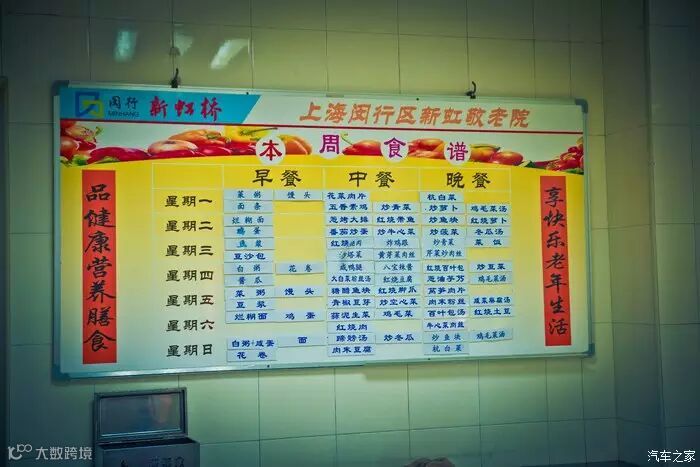 闵行
MINHANG
新虹桥
上海闵行区新虹敬老院
本周食谱
品健康营养膳食
享快乐老年生活
早餐 中餐 晚餐
星期一
星期二
星期三
星期四
星期五
星期六
星期日
菜粥 馒头 花菜肉片 杭白菜
面条 五香素鸡 炒青菜 炒萝卜 鸡毛菜汤
烂糊面 葱烤大排 红烧带鱼 炒鱼块 红烧萝卜
鸡蛋 番茄炒蛋 炒牛心菜 炒菠菜 冬瓜汤
豆浆 炸鸡腿 炒青菜 菜饭
豆沙包 黄芽菜肉丝 芹菜炒肉丝
白粥 花卷 咸鸭腿 八宝辣酱 红烧百叶包 炒豆菜
酱瓜 大白菜粉丝汤 红烧豆腐 鸡毛菜汤
菜粥 馒头 糖醋鱼块 红烧脚爪 莴笋肉片
豆浆 青椒豆芽 炒空心菜 肉末粉丝 咸菜麻腐汤
烂糊面 鸡蛋 鸡毛菜 百叶包汤 红烧土豆
红烧肉 牛心菜肉丝
白粥+咸蛋 面 炒冬瓜 炒鱼块 鸡毛菜汤
花卷 肉末豆腐 杭白菜
大数跨境
汽车之家